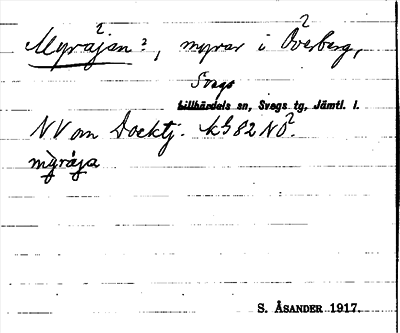 Myråjan?, myrar i Överberg,
Svegs
Lillhärdals sn, Svegs tg, Jämtl. l.
NV om Docktj. kbl 82 NÖ.
myråja
S. ÅSANDER 1917.